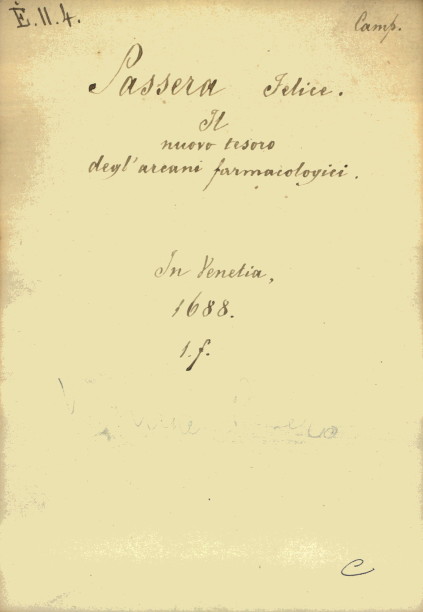 E.11.4.
Camp.
Passera Felice.
Il
nuovo tesoro
degl'arcani farmacologici.
In Venetia,
1688.
1.f.
C